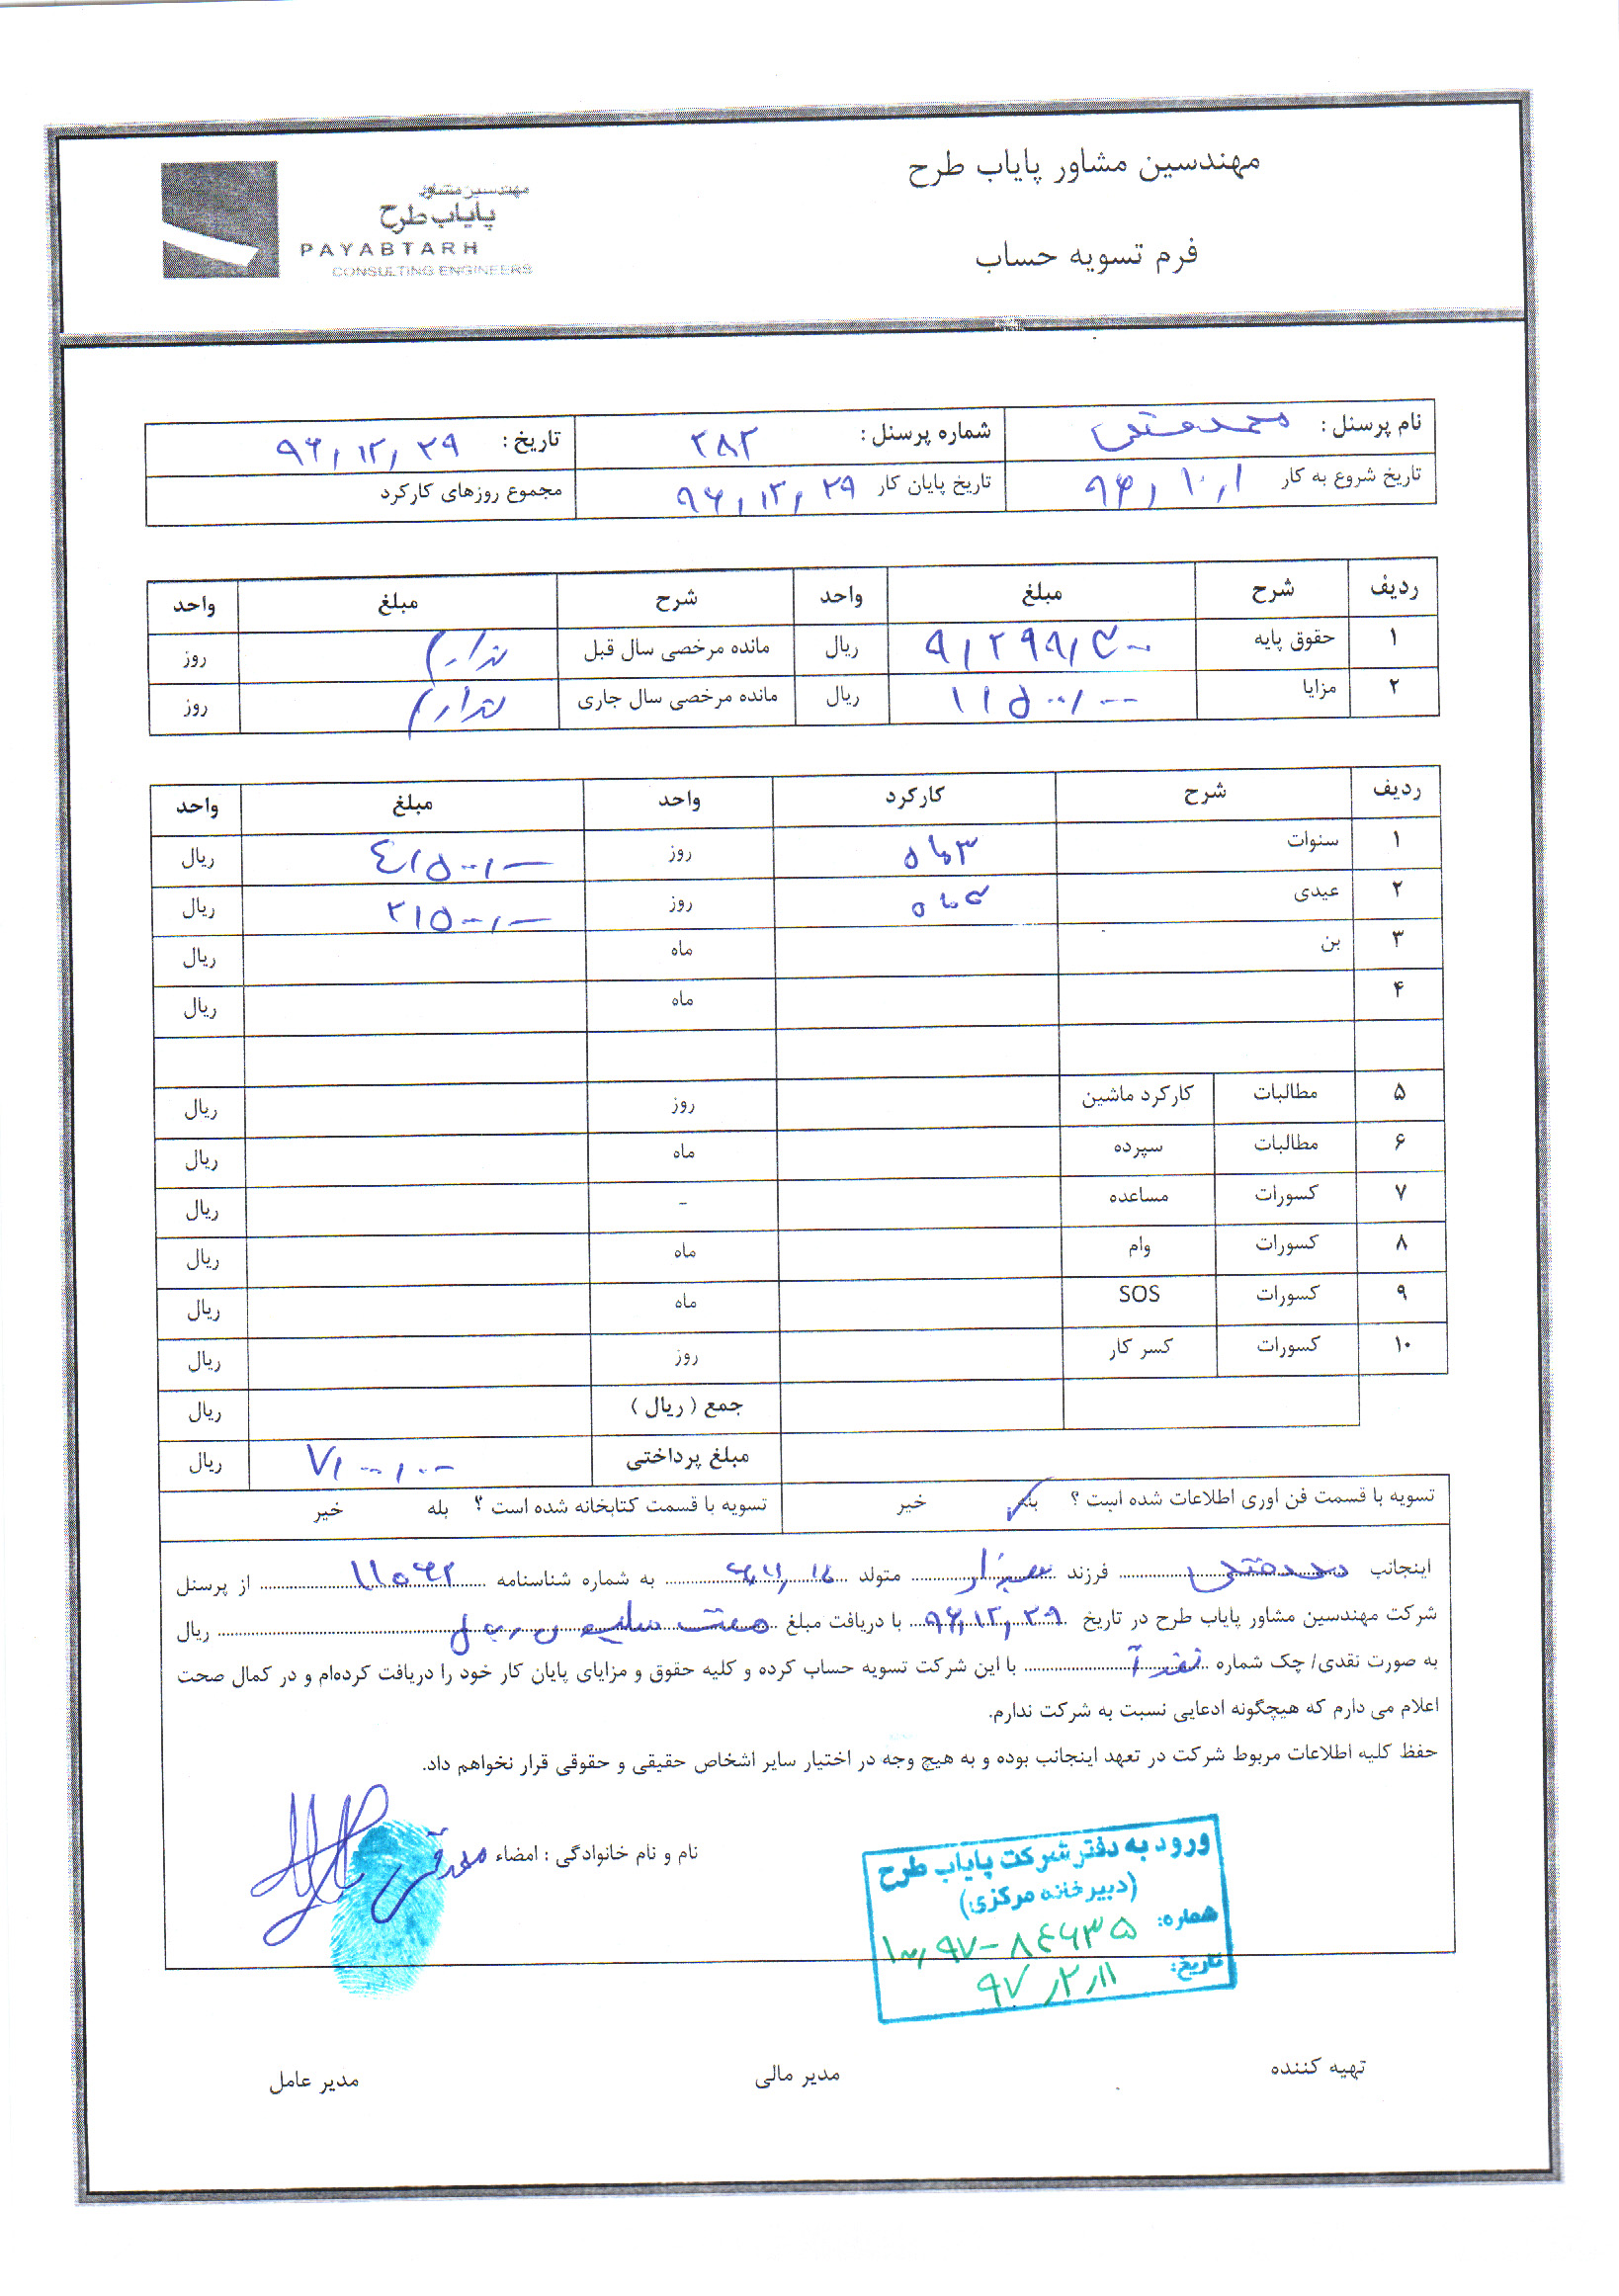 مهندسین مشاور پایاب طرح
فرم تسویه حساب
مهندسین مشاور
پایاب طرح
PAYABTARH
CONSULTING ENGINEERS
نام پرسنل : شماره پرسنل : ۲۸۲ تاریخ : ۹۶,۱۲,۲۹
تاریخ شروع به کار ۹۶,۱۰,۱ تاریخ پایان کار ۹۶,۱۲,۲۹ مجموع روزهای کارکرد
ردیف شرح مبلغ واحد شرح مبلغ واحد
۱ حقوق پایه ریال مانده مرخصی سال قبل ندارم روز
۲ مزایا ریال مانده مرخصی سال جاری ندارم روز
ردیف شرح کارکرد واحد مبلغ واحد
۱ سنوات ۳ ماه روز ریال
۲ عیدی روز ریال
۳ بن ماه ریال
۴ ماه ریال
۵ مطالبات کارکرد ماشین روز ریال
۶ مطالبات سپرده ماه ریال
۷ کسورات مساعده - ریال
۸ کسورات وام ماه ریال
۹ کسورات SOS ماه ریال
۱۰ کسورات کسر کار روز ریال
جمع ( ریال ) ریال
مبلغ پرداختی ریال
تسویه با قسمت فن اوری اطلاعات شده است ؟ بله خیر تسویه با قسمت کتابخانه شده است ؟ بله خیر
اینجانب فرزند متولد به شماره شناسنامه ۱۱۰۶۲ از پرسنل
شرکت مهندسین مشاور پایاب طرح در تاریخ ۹۶,۱۲,۲۹ با دریافت مبلغ ریال
به صورت نقدی/ چک شماره نقداً با این شرکت تسویه حساب کرده و کلیه حقوق و مزایای پایان کار خود را دریافت کرده‌ام و در کمال صحت
اعلام می دارم که هیچگونه ادعایی نسبت به شرکت ندارم.
حفظ کلیه اطلاعات مربوط شرکت در تعهد اینجانب بوده و به هیچ وجه در اختیار سایر اشخاص حقیقی و حقوقی قرار نخواهم داد.
نام و نام خانوادگی : امضاء
ورود به دفتر شرکت پایاب طرح
(دبیرخانه مرکزی)
شماره:
تاریخ: ۹۷,۲,۱۱
تهیه کننده مدیر مالی مدیر عامل